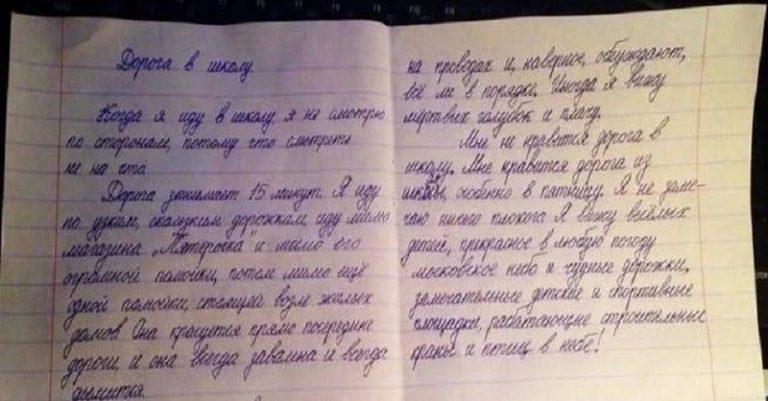 Дорога в школу.
Когда я иду в школу, я не смотрю
по сторонам, потому что смотреть
не на что.
Дорога занимает 15 минут. Я иду
по узким, скользким дорожкам, иду мимо
магазина „Пятёрочка" и мимо его
огромной помойки, потом мимо ещё
одной помойки, стоящей возле жилых
домов. Она кращется прямо посередине
дороги, и она всегда завалена и всегда
дымится.
на проводах и, наверное, обсуждают,
всё ли в порядке. Иногда я вижу
мёртвых голубок и плачу.
Мне не нравится дорога в
школу. Мне нравится дорога из
школы, особенно в пятницу. Я не заме-
чаю ничего плохого. Я вижу весёлых
детей, прекрасное в любую погоду
московское небо и чудные дорожки,
замечательные детские и спортивные
площадки, работающие строительные
краны и птиц в небе!